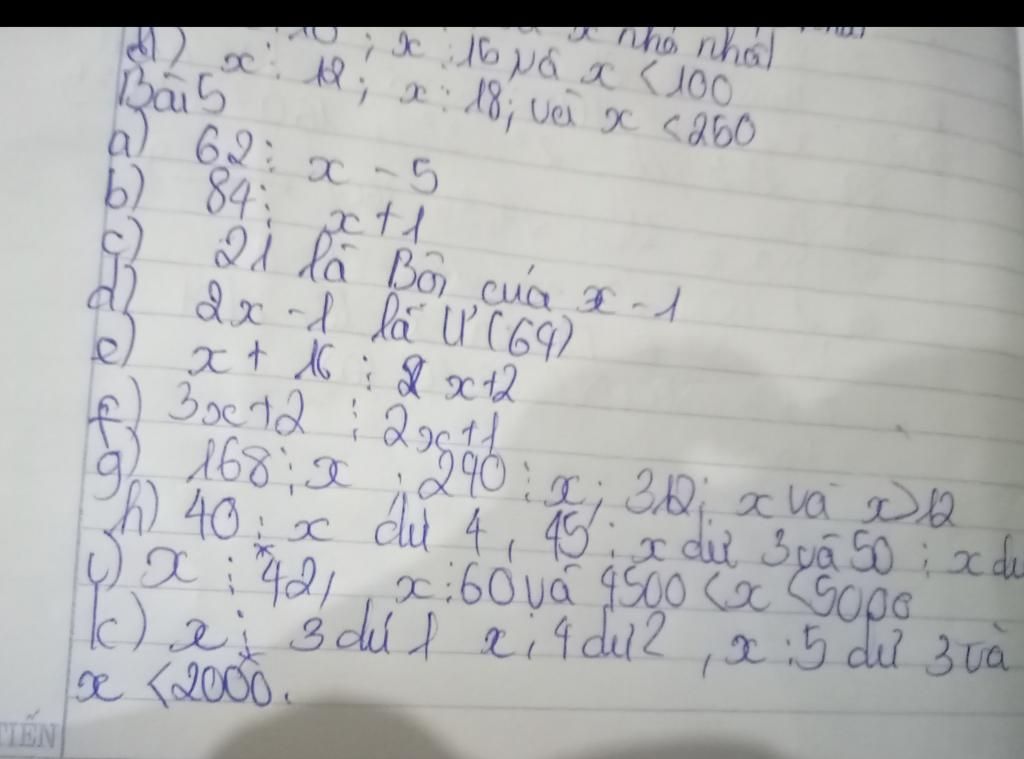 x nhỏ nhất
x ⋮ 16 và x < 100
x ⋮ 12; x ⋮ 18; và x < 250
Bài 5
a) 62 ⋮ x - 5
b) 84 ⋮ x + 1
c) 21 là Bội của x - 1
d) 2x - 1 là Ư(64)
e) x + 16 ⋮ x + 2
f) 3x + 2 ⋮ 2x + 1
g) 168 ⋮ x ; 240 ⋮ x; 312 ⋮ x và x > 12
h) 40 ⋮ x dư 4, 45 ⋮ x dư 3 và 50 ⋮ x dư
i) x ⋮ 42, x ⋮ 60 và 4500 < x < 5000
k) x ⋮ 3 dư 1 x ⋮ 4 dư 2, x ⋮ 5 dư 3 và
x < 2000.
TIẾN